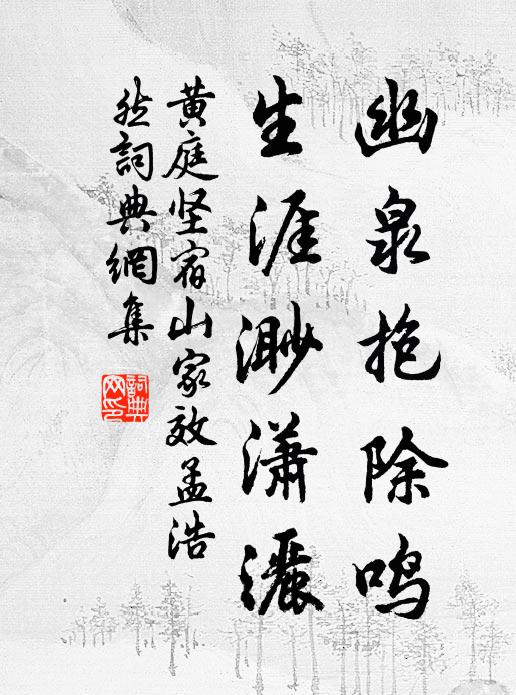 幽泉抱除鸣
生涯渺潇灑
黄庭坚宿山家效孟浩
然詞典網集
詞典
网印